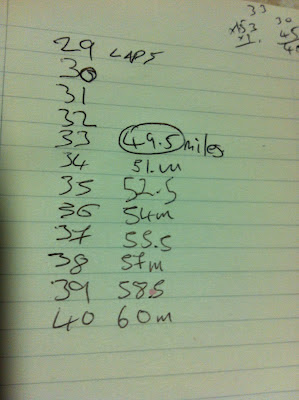 33
29 LAPS
30
31
32
33 49.5 miles
34 51.m
35 52.5
36 54m
37 55.5
38 57m
39 58.5
40 60m